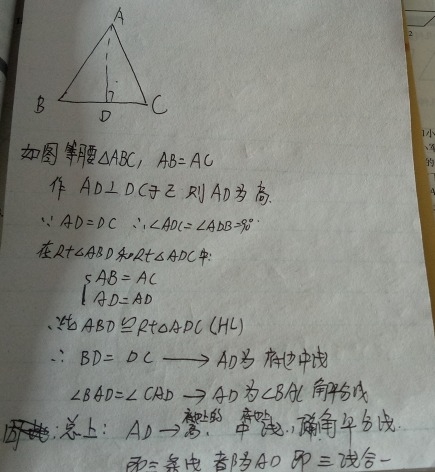 A
B
D
C
如图等腰△ABC, AB=AC
作 AD⊥DC于Z 则AD为高.
∵ AD=DC ∴∠ADC=∠ADB=90°
在Rt△ABD和Rt△ADC中:
AB=AC
AD=AD
ABD≌Rt△ADC(HL)
∴ BD=DC → AD为 中线
∠BAD=∠CAD → AD为∠BAC角平分线
总上: AD→高, 中线, 角平分线.
即三条线 都为AD 即三线合一